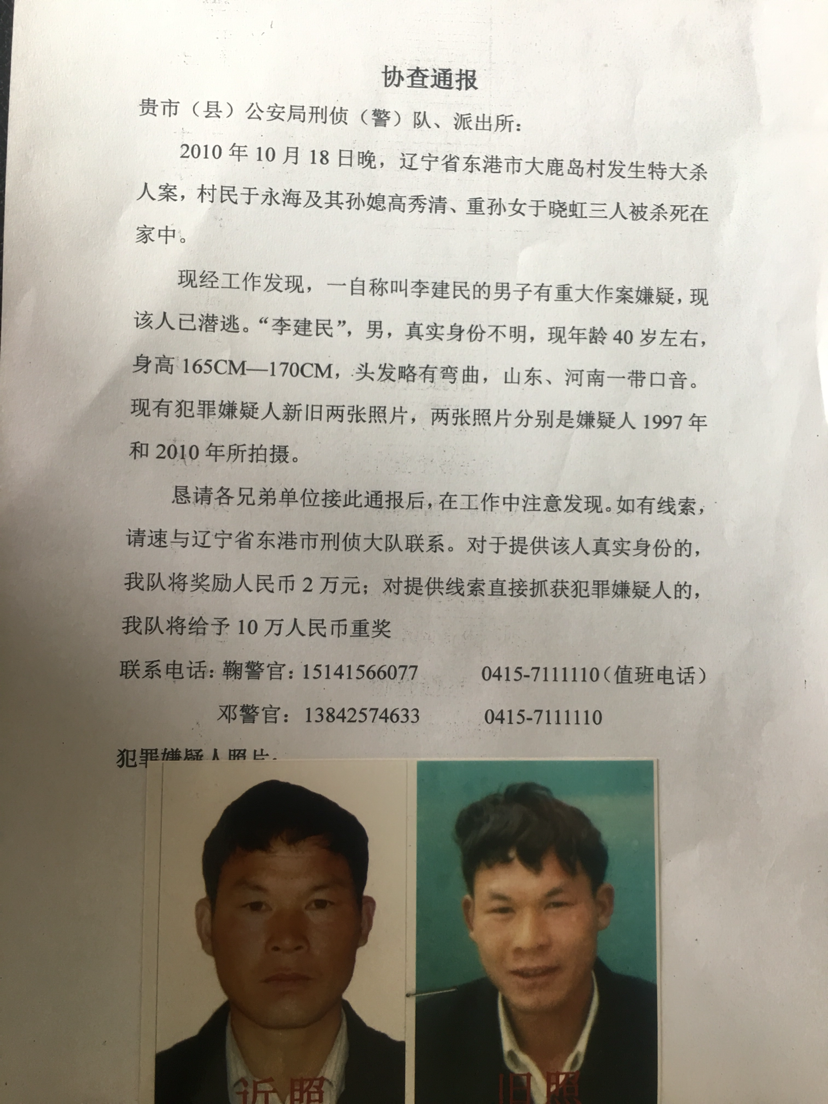 协查通报
贵市（县）公安局刑侦（警）队、派出所：
2010 年 10 月 18 日晚，辽宁省东港市大鹿岛村发生特大杀
人案，村民于永海及其孙媳高秀清、重孙女于晓虹三人被杀死在
家中。
现经工作发现，一自称叫李建民的男子有重大作案嫌疑，现
该人已潜逃。“李建民”，男，真实身份不明，现年龄 40 岁左右，
身高 165CM—170CM，头发略有弯曲，山东、河南一带口音。
现有犯罪嫌疑人新旧两张照片，两张照片分别是嫌疑人 1997 年
和 2010 年所拍摄。
恳请各兄弟单位接此通报后，在工作中注意发现。如有线索，
请速与辽宁省东港市刑侦大队联系。对于提供该人真实身份的，
我队将奖励人民币 2 万元；对提供线索直接抓获犯罪嫌疑人的，
我队将给予 10 万人民币重奖
联系电话：鞠警官：15141566077 0415-7111110（值班电话）
邓警官：13842574633 0415-7111110
犯罪嫌疑人照片：
近照 旧照